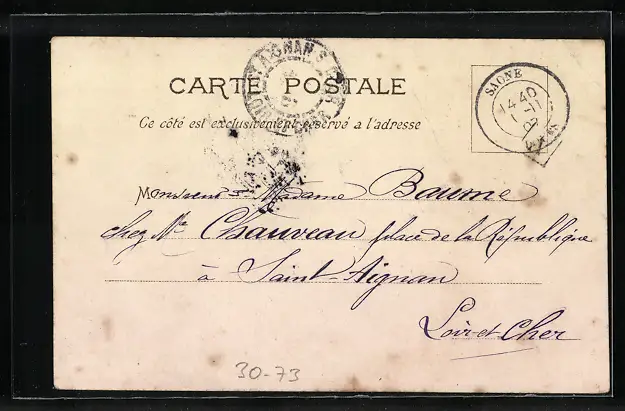 CARTE POSTALE
Ce côté est exclusivement réservé a l'adresse
SAONE
14 40
Monsieur & Madame Baume
chez Mr Chauveau place de la République
à Saint-Aignan
Loir-et-Cher
30-73